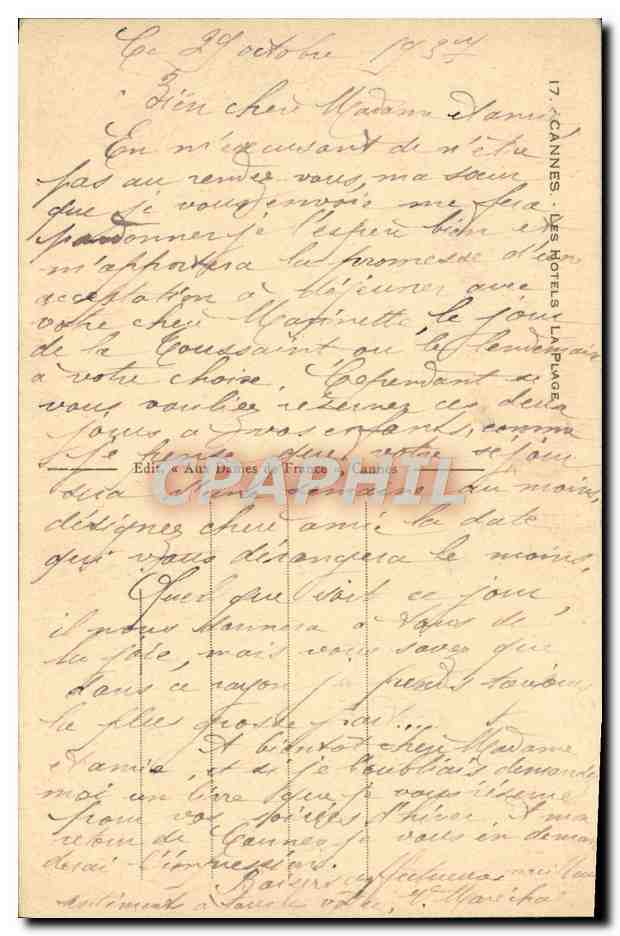 Ce 29 octobre
Bien chère Madame et amie,
En m'excusant de n'être
pas au rendez vous, ma sœur
que je vous envoie me fera
pardonner je l'espère bien et
m'apportera la promesse d'une
acceptation à déjeuner avec
votre chère Marinette, le jour
de la Toussaint ou le lendemain
à votre choix. Cependant si
vous vouliez réserver ces deux
jours à vos enfants, comme
je pense que votre séjour
sera d'une semaine au moins,
désignez chère amie la date
qui vous dérangera le moins.
Quel que soit ce jour,
il nous donnera à tous de
la joie, mais vous savez que
dans ce rayon je prends toujours
la plus grosse part...
A bientôt chère Madame
et amie, et si je l'oubliais demandez
moi un livre que je vous réserve
pour vos soirées d'hiver. A mon
retour de Cannes je vous en deman
derai l'impression.
Baisers affectueux
à toute votre
17. - CANNES. - LES HOTELS - LA PLAGE
Edit. « Aux Dames de France », Cannes
CPAPHIL